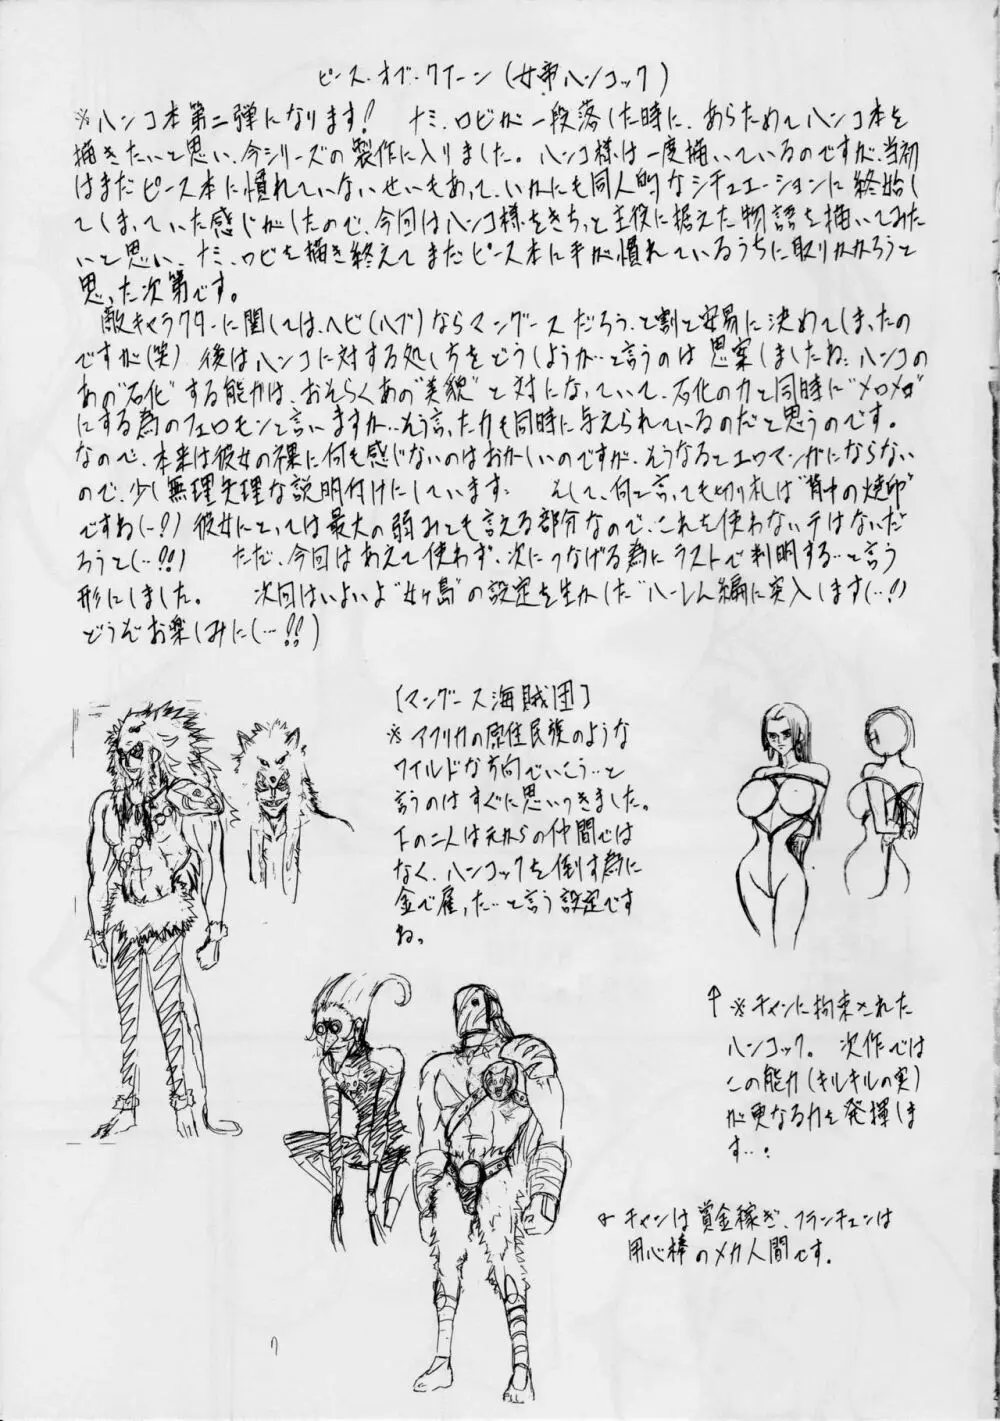 ピース・オブ・クイーン(女帝ハンコック)
※ハンコ本第二弾になります! ナミ、ロビが一段落した時に、あらためてハンコ本を
描きたいと思い、今シリーズの製作に入りました。ハンコ様は一度描いているのですが、当初
はまだピース本に慣れていないせいもあって、いかにも同人的なシチュエーションに終始し
てしまっていた感じがしたので、今回はハンコ様をきちっと主役に据えた物語を描いてみた
いと思い、ナミ、ロビを描き終えてまだピース本に手が慣れているうちに取りかかろうと
思った次第です。
敵キャラクターに関しては、ヘビ(ハブ)ならマングースだろう、と割と安易に決めてしまったの
ですが(笑) 後はハンコに対する処し方をどうしようか…と言うのは思案しましたね、ハンコの
あの"石化"する能力は、おそらくあの"美貌"と対になっていて、石化の力と同時に"メロメロ"
にする為のフェロモンと言いますか…そう言った力も同時に与えられているのだと思うのです。
なので、本来は彼女の裸に何も感じないのはおかしいのですが、そうなるとエロマンガにならない
ので、少し無理矢理な説明付けにしています。 そして、何と言っても切り札は"背中の焼印"
ですね(…!?) 彼女にとっては最大の弱みとも言える部分なので、これを使わないテはないだ
ろうと(…!!) ただ、今回はあえて使わず、次につなげる為にラストで判明する…と言う
形にしました。 次回はいよいよ"女ヶ島"の設定を生かした"ハーレム編"に突入します(…!!)
どうぞお楽しみに(…!!)
[マングース海賊団]
※アフリカの原住民族のような
ワイルドな方向でいこう…と
言うのはすぐに思いつきました。
下の二人は元からの仲間では
なく、ハンコックを倒す為に
金で雇った…と言う設定です
ね。
↑※チャンに拘束された
ハンコック。 次作では
この能力(キルキルの実)
が更なる力を発揮しま
す…!
チャンは賞金稼ぎ、フランチェンは
用心棒のメカ人間です。